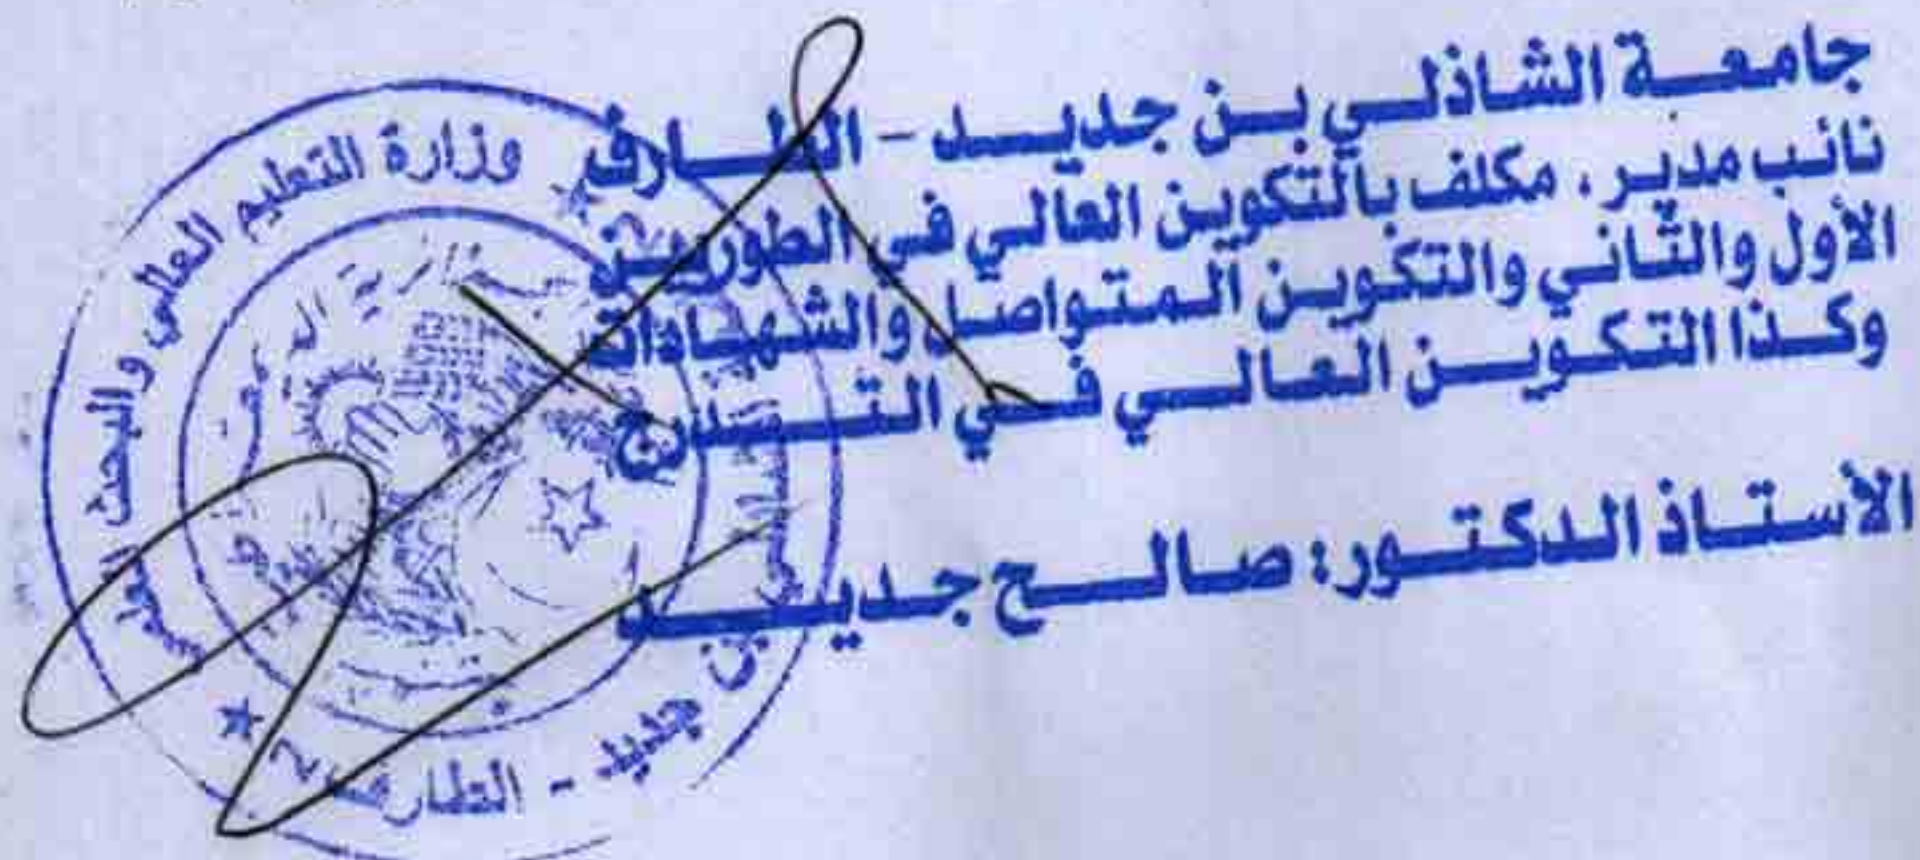 جامعة الشاذلي بن جديد - الطارف
نائب مدير، مكلف بالتكوين العالي في الطورين
الأول والثاني والتكوين المتواصل والشهادات
وكذا التكوين العالي في التدرج
الأستاذ الدكتور: صالح جديد
وزارة التعليم العالي والبحث العلمي
بن جديد - الطارف